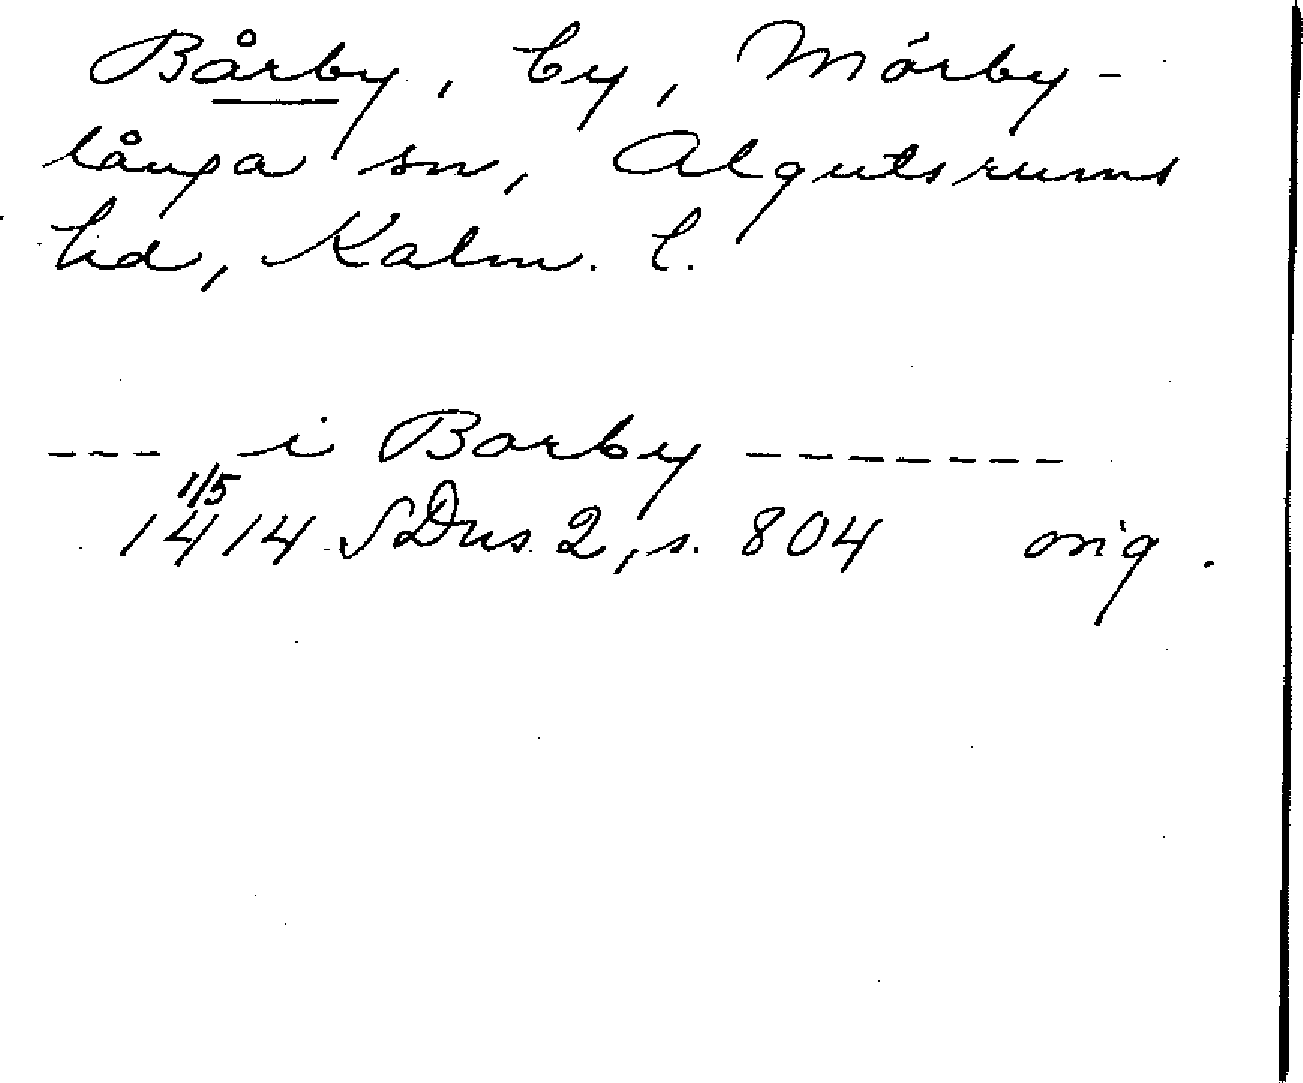 Bårby, by, Mörby-
långa sn, Algutsrums
hd, Kalm. l.
--- i Borby -------
1/5
1414 SDns 2, s. 804 orig.